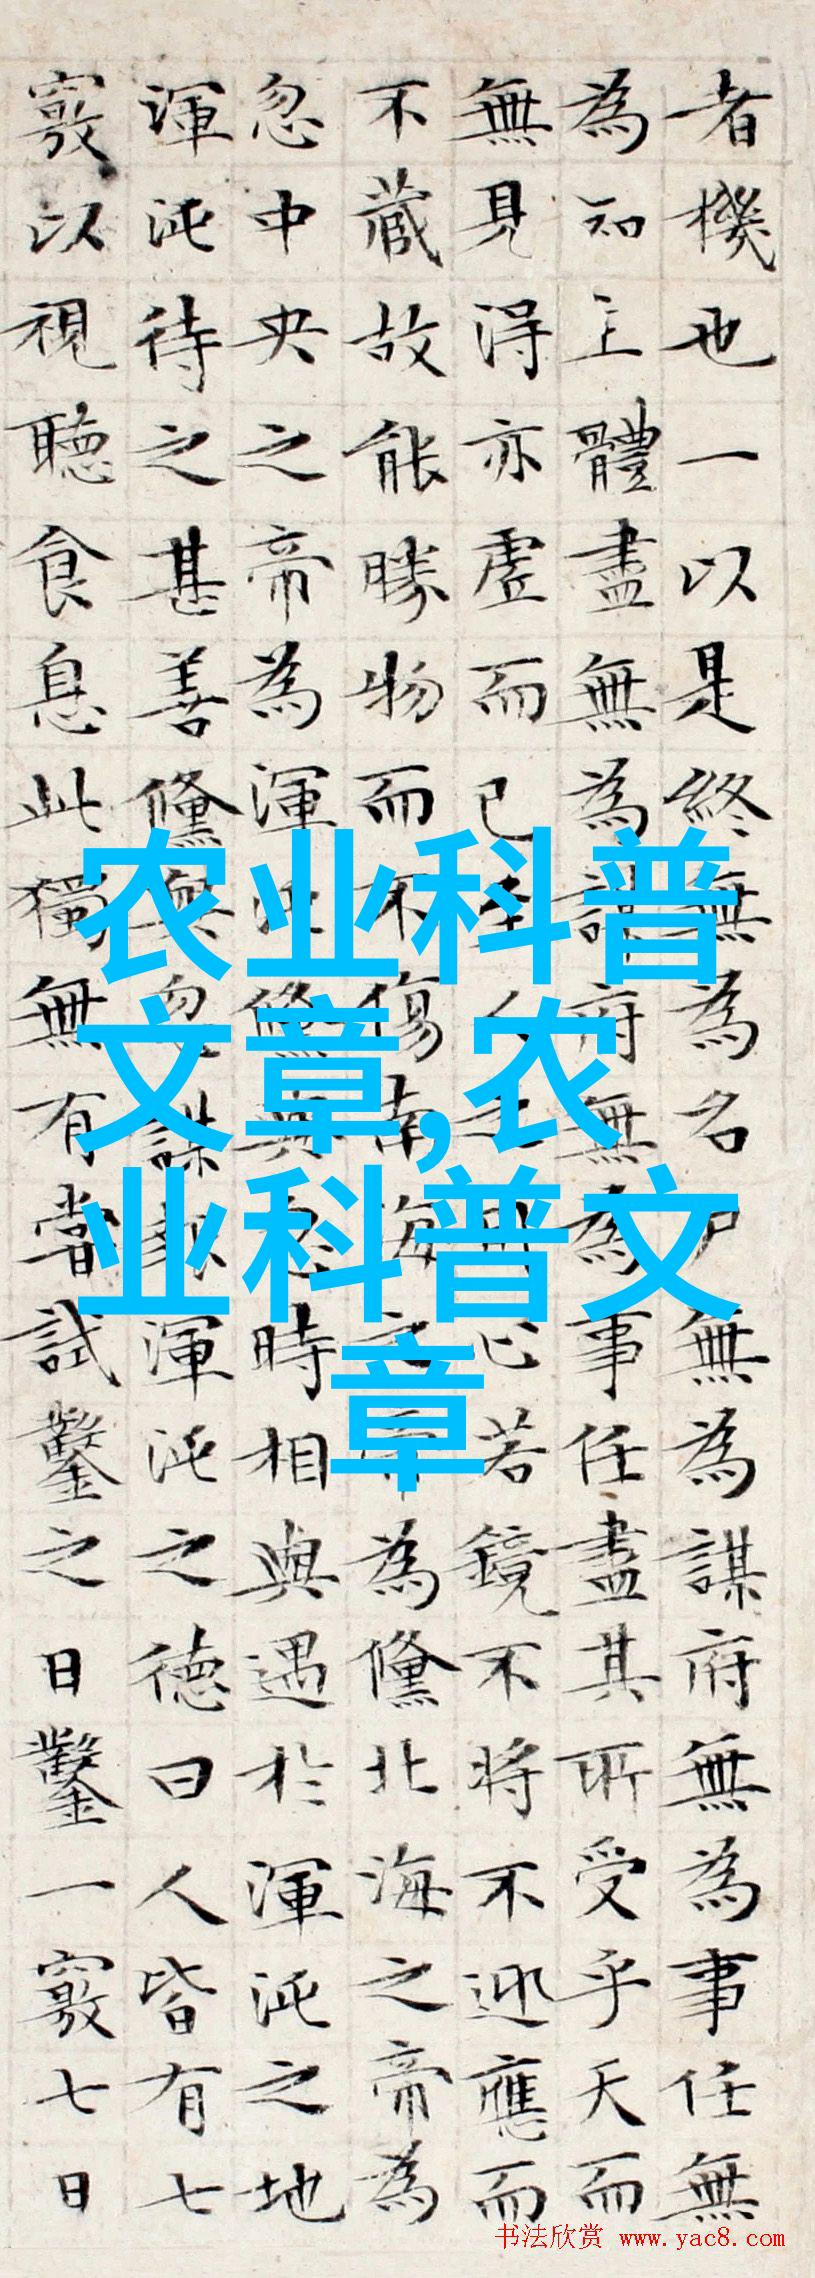 者機也一以是終無為名尸無為謀府無為事任無
為知主體盡無為謀府無為事任盡其所受乎天而
無見得亦虛而已至人之用心若鏡不將不迎應而
不藏故能勝物而不傷南海之帝為儵北海之帝為
忽中央之帝為渾沌儵與忽時相與遇於渾沌之地
渾沌待之甚善儵與忽謀報渾沌之德曰人皆有七
竅以視聽食息此獨無有嘗試鑿之日鑿一竅七日
农业科普
文章,农
业科普文
章
书法欣赏 www.yac8.com